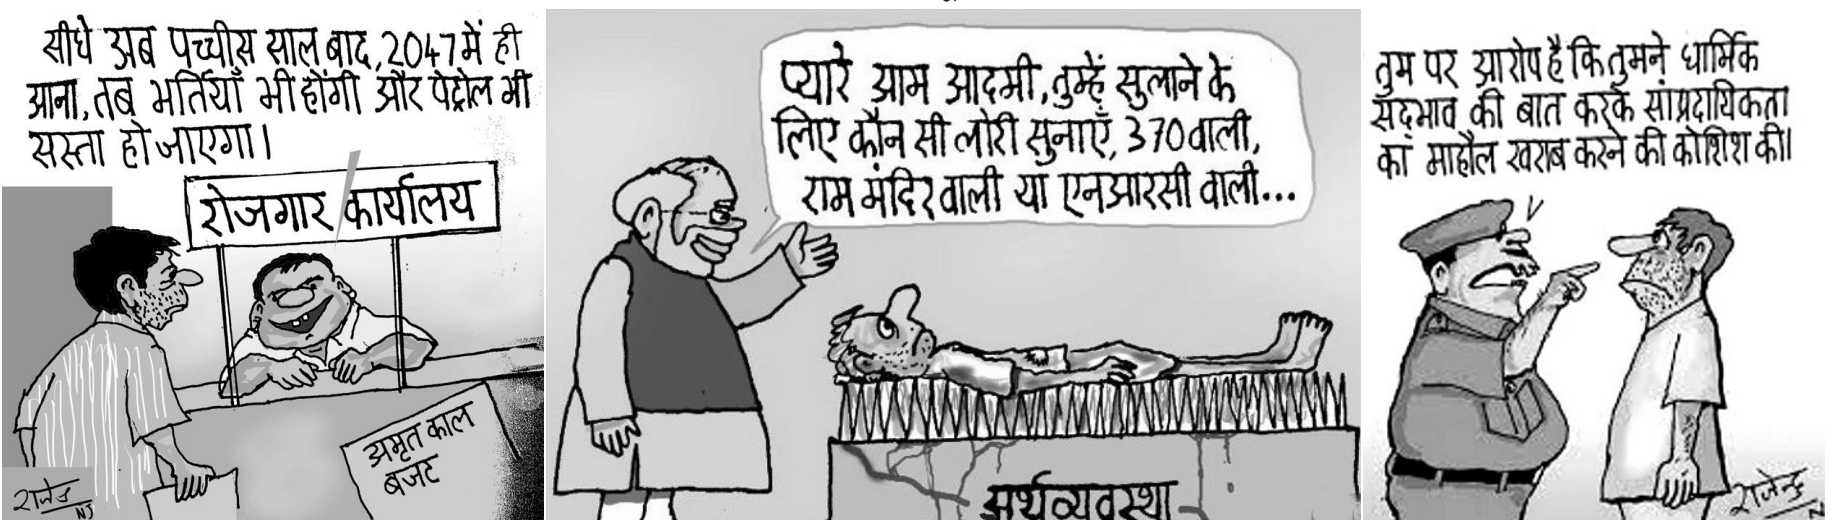 सीधे अब पच्चीस साल बाद, 2047 में ही
आना, तब भर्तियाँ भी होंगी और पेट्रोल भी
सस्ता हो जाएगा।
रोजगार कार्यालय
अमृत काल
बजट
राजेन्द्र
NJ
प्यारे आम आदमी, तुम्हें सुलाने के
लिए कौन सी लोरी सुनाएँ, 370 वाली,
राम मंदिर वाली या एनआरसी वाली...
अर्थव्यवस्था
तुम पर आरोप है कि तुमने धार्मिक
सदभाव की बात करके सांप्रदायिकता
का माहौल खराब करने की कोशिश की।
राजेन्द्र